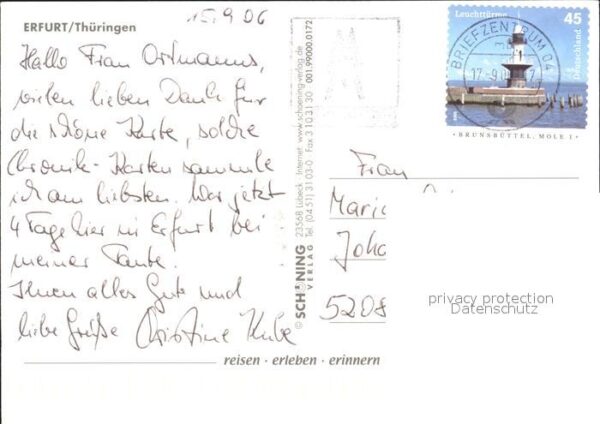 ERFURT/Thüringen
15.9.06
Hallo Frau Ortmanns,
vielen lieben Dank für
die schöne Karte, solche
Chronik-Karten sammle
ich am liebsten. War jetzt
4 Tage hier in Erfurt bei
meiner Tante.
Ihnen alles Gute und
liebe Grüße Christine Kube
reisen · erleben · erinnern
© SCHÖNING VERLAG
23568 Lübeck Internet www.schoening-verlag.de
Tel. (04 51) 3 10 3-0 Fax 3 10 31 30 001.99000.0172
Leuchttürme
45
Deutschland
BRUNSBÜTTEL, MOLE 1
BRIEFZENTRUM 04
Frau
Maric
Joha
5208
privacy protection
Datenschutz